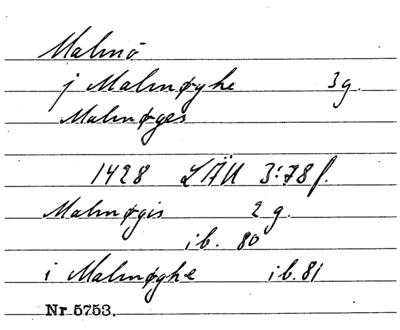 Malmö
j Malmøghe 3 g.
Malmøges
1428 LÄU 3:78 f.
Malmøgis 2 g.
ib. 80
i Malmøghe ib. 81
Nr 5753.